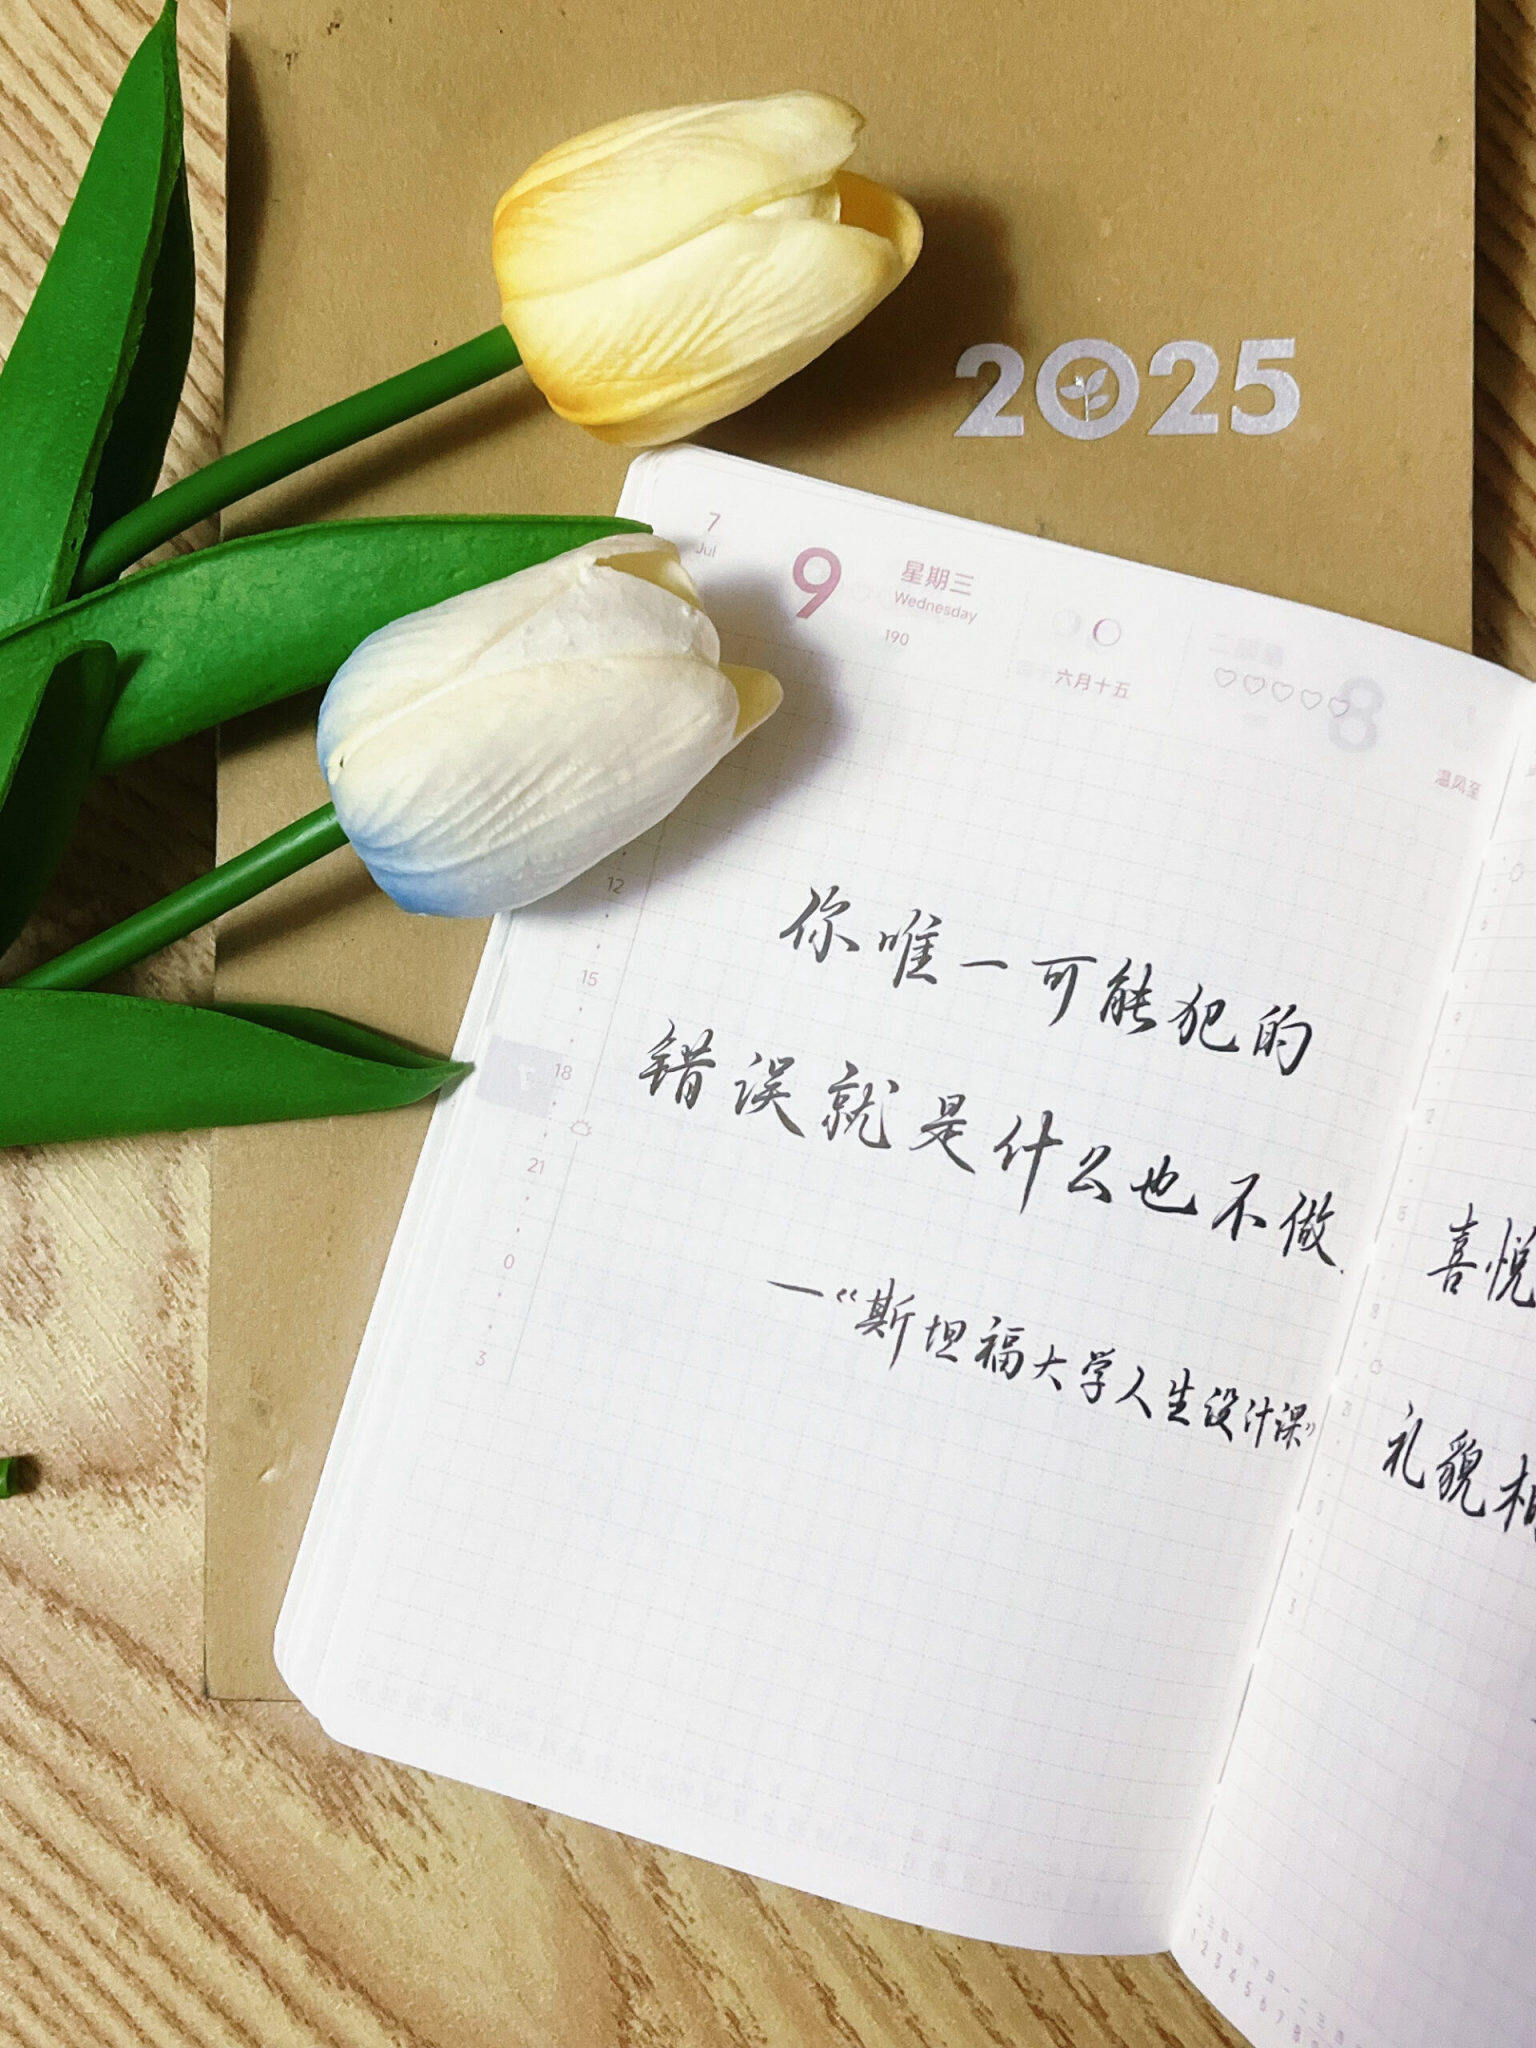 2025
7
Jul
9
星期三
Wednesday
190
六月十五
温风至
12
15
18
21
0
3
你唯一可能犯的
错误就是什么也不做.
—《斯坦福大学人生设计课》
喜悦
礼貌相